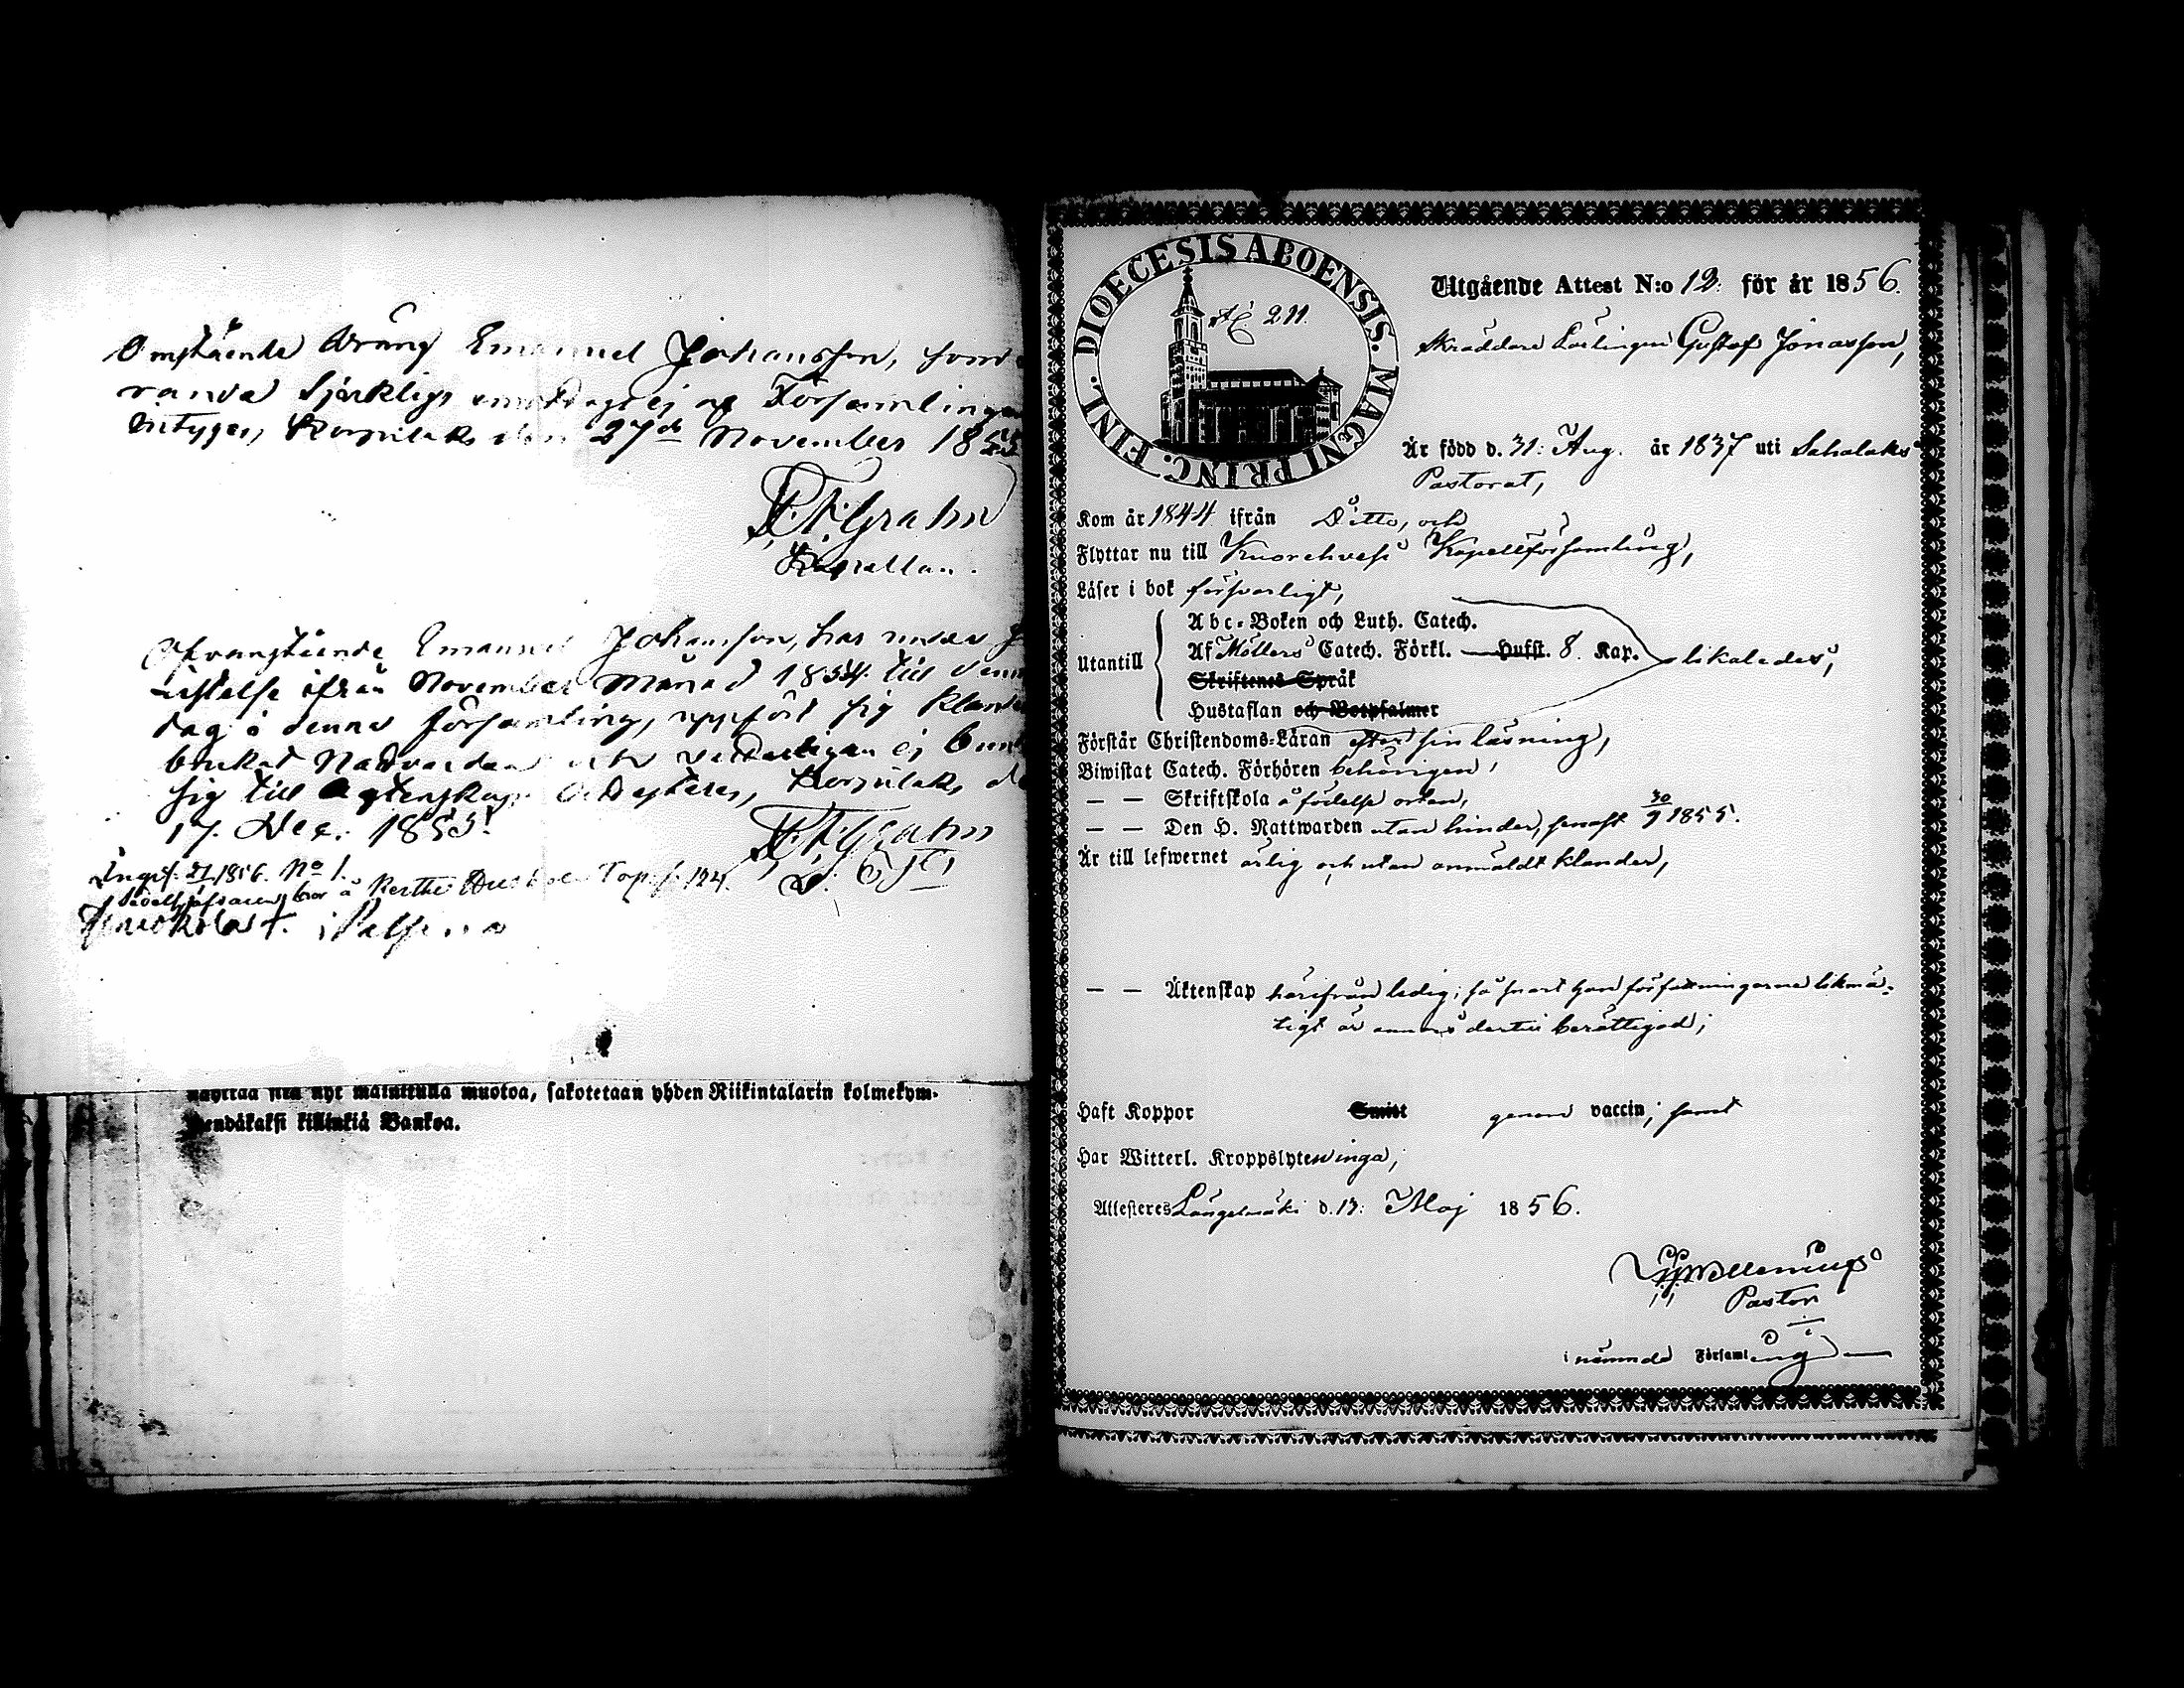 Omstående Dräng Emanuel Johansson, som
randa Sjuklig, emottages ej af Församlingen
Intygar, Korpilaks den 27de November 1855
Grahn
Kapellan.
Ofvanstående Emanuel Johansson, har under
ifrån November Månad 1854 till denna
dag i denna församling, uppfört sig
brukat Nadvarden och veterligen ej
sig till Ägtenskap Attesteres, Korpilaks
17. Dec. 1855.
Grahn
1856. No 1.
nyttää sitä nyt mainittua muotoa, sakotetaan yhden Riikintalarin kolmekym-
mendäkaksi killinkiä Bankoa.
DIOECESIS ABOENSIS. MAGNI PRINC. FINL.
211.
Utgående Attest N:o 12: för år 1856.
Skräddare Lärlingen Gustaf Jonasson,
Är född d. 31: Aug. år 1837 uti Sahalaks
Pastorat,
Kom år 1844 ifrån Ditto, och
Flyttar nu till Kuorehvesi Kapellförsamling,
Läser i bok försvarligt,
Abc-Boken och Luth. Catech.
Utantill Af Möllers Catech. Förkl. Husst. 8. Kap. likaledes,
Skriftenes Språk
Hustaflan och Botpsalmer
Förstår Christendoms-Läran efter sin läsning,
Biwistat Catech. Förhören behörigen,
— — Skriftskola å födelse orten,
— — Den H. Nattwarden utan hinder, senast 30/9 1855.
Är till lefwernet ärlig och utan anmäldt klander,
— — Äktenskap härifrån ledig, så snart han författningarne likmä-
tigt är annars dertill berättigad;
Haft Koppor Smitt genom vaccin; samt
Har Witterl. Kroppslyten inga,
Attesteres Längelmäki d. 13: Maj 1856.
Pastor
i nämnde Församling